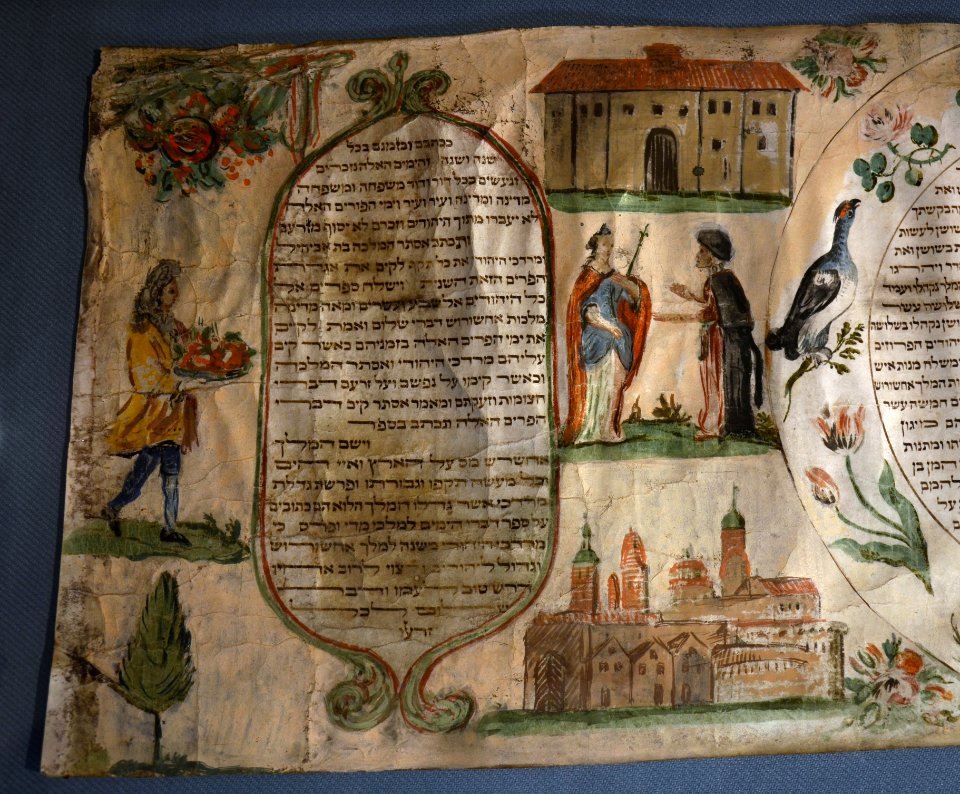 ואת
בקשתך
שושן לעשות
בשושן ואת
נקהלו ועמד
עשר
נקהלו בשלושה
הפרוזים
ומשלח מנות איש
המלך אחשורוש
עשר
מיגון
ומתנות
המן בן
להמם
על
ככתבם וכזמנם בכל
שנה ושנה והימים האלה נזכרים
ונעשים בכל דור ודור משפחה ומשפחה
מדינה ומדינה ועיר ועיר וימי הפורים האלה
לא יעברו מתוך היהודים וזכרם לא יסוף מזרעם
ותכתב אסתר המלכה בת אביחיל
ומרדכי היהודי את כל תקף לקים את אגרת
הפרים הזאת השנית וישלח ספרים אל
כל היהודים אל שבע ועשרים ומאה מדינה
מלכות אחשורוש דברי שלום ואמת לקים
את ימי הפרים האלה בזמניהם כאשר קים
עליהם מרדכי היהודי ואסתר המלכה
וכאשר קימו על נפשם ועל זרעם דברי
הצומות וזעקתם ומאמר אסתר קים דברי
הפרים האלה ונכתב בספר
וישם המלך
אחשרש מס על הארץ ואיי הים
וכל מעשה תקפו וגבורתו ופרשת גדלת
מרדכי אשר גדלו המלך הלוא הם כתובים
על ספר דברי הימים למלכי מדי ופרס כי
מרדכי היהודי משנה למלך אחשורוש
וגדול ליהודים ורצוי לרוב אחיו
דרש טוב לעמו ודבר
שלום לכל
זרעו